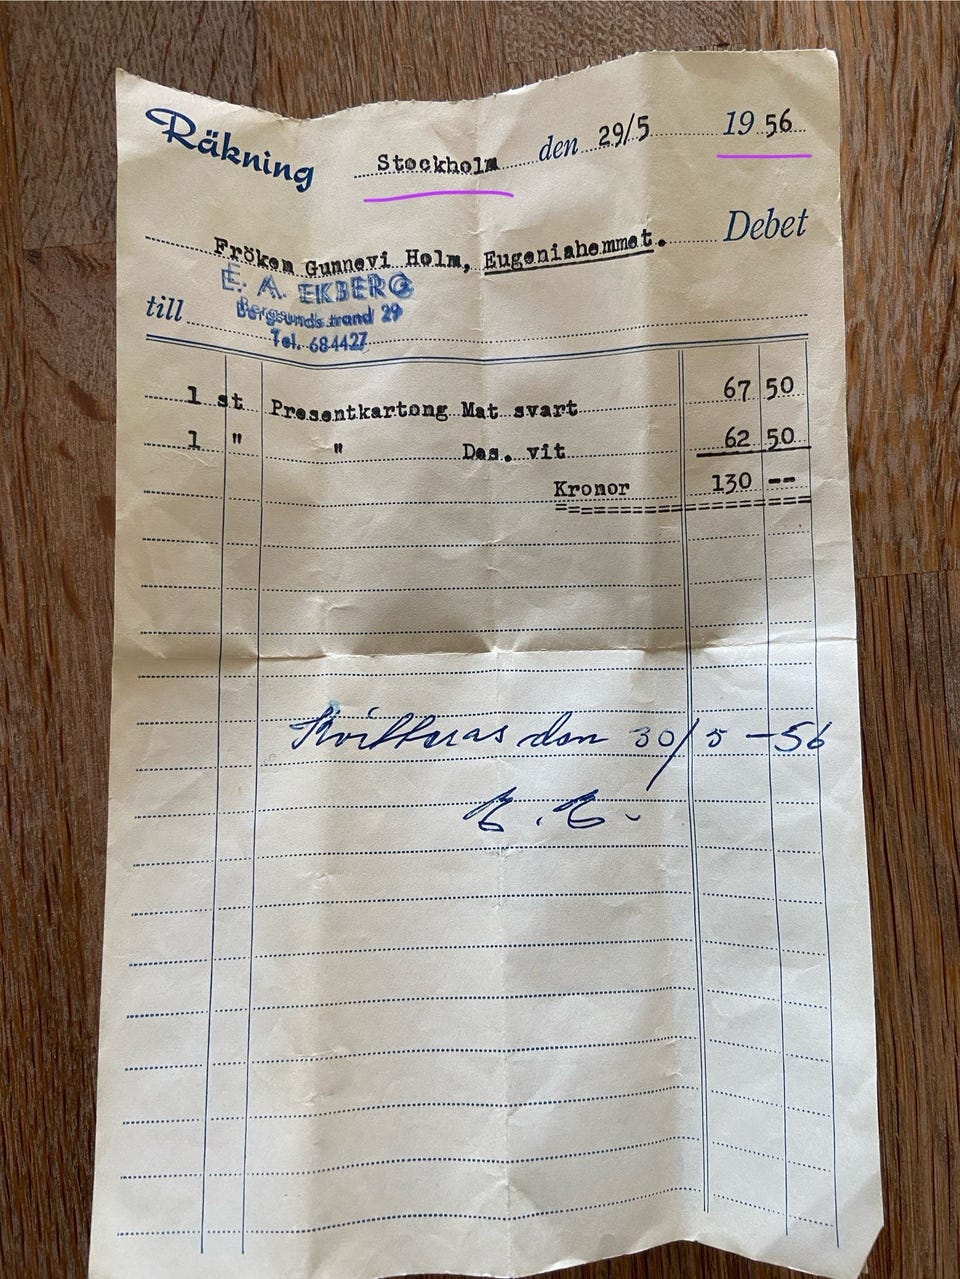 Räkning Stockholm den 29/5 1956
Fröken Gunnevi Holm, Eugeniahemmet. Debet
E. A. EKBERG
Bergsunds strand 29
till
Tel. 684427
1 st Presentkartong Mat svart 67 50
1 " " Des. vit 62 50
Kronor 130 --
Kvitteras den 30/5 -56
E. E.